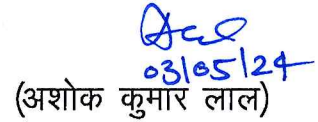 03/05/24
(अशोक कुमार लाल)